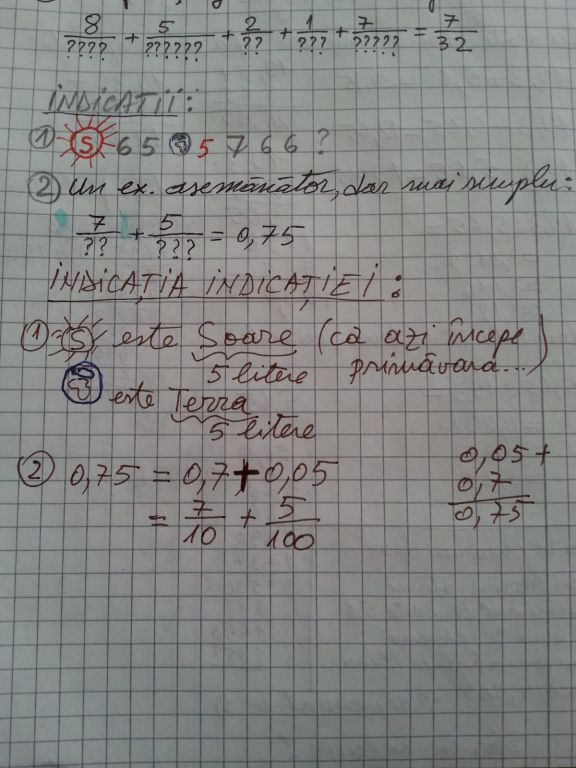 8/???? + 5/?????? + 2/?? + 1/??? + 7/????? = 7/32
INDICATII:
① S 6 5 5 7 6 6 ?
② Un ex. asemănător, dar mai simplu:
7/?? + 5/??? = 0,75
INDICAȚIA INDICAȚIEI:
① S este Soare (că azi începe
5 litere primăvara...)
este Terra
5 litere
② 0,75 = 0,7 + 0,05
= 7/10 + 5/100
0,05 +
0,7
0,75